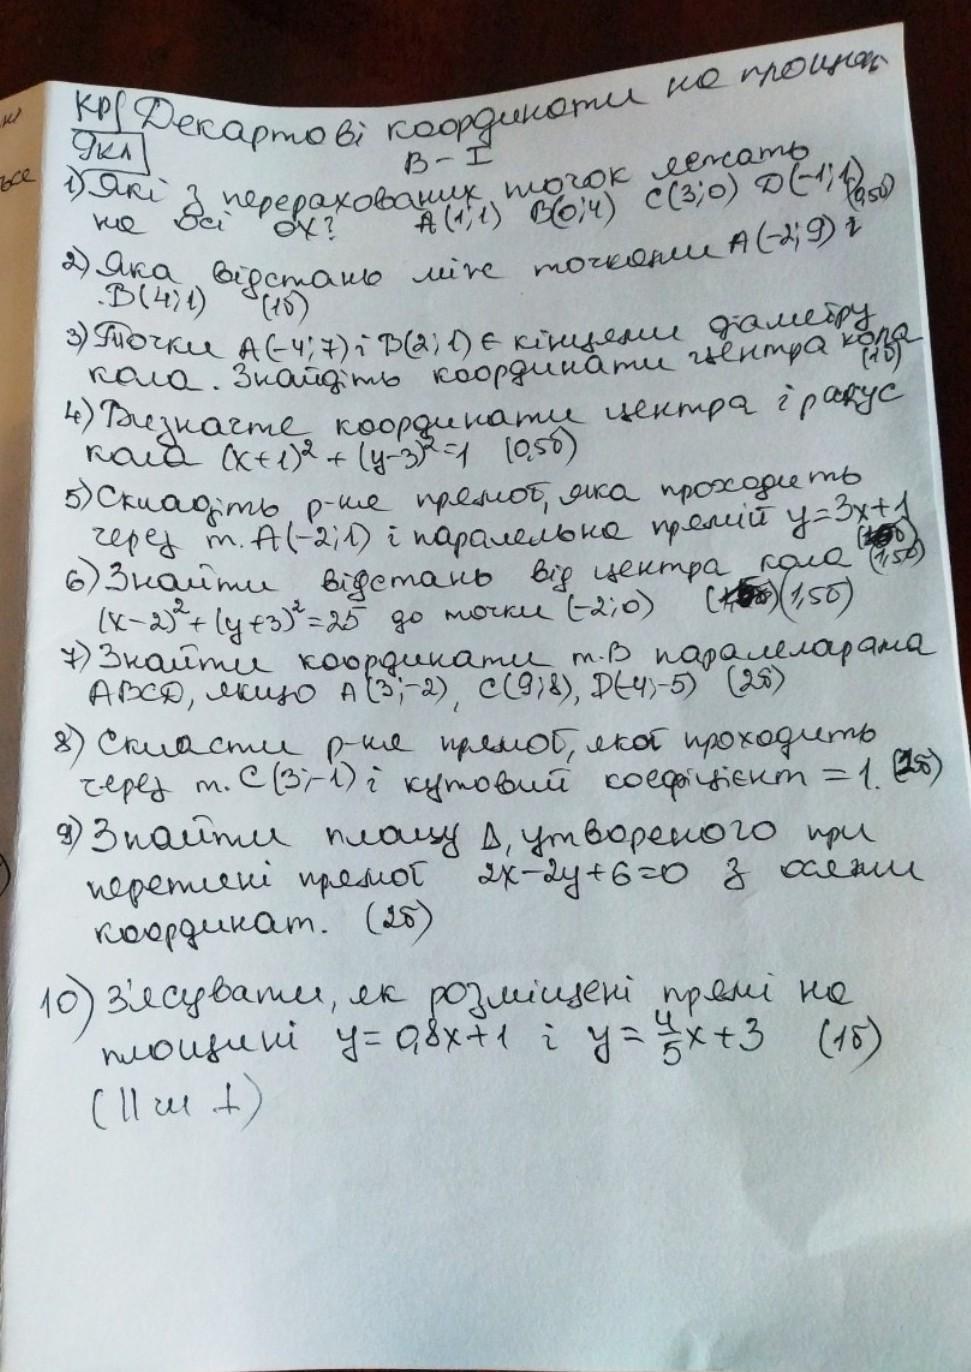 КР/ Декартові координати на площині
9кл
В - I
1) Які з перерахованих точок лежать
на осі ох? A(1;1) B(0;4) C(3;0) D(-1;1) (0,5б)
2) Яка відстань між точками A(-2;9) і
B(4;1) (1б)
3) Точки A(-4;7) і B(2;1) є кінцями діаметру
кола. Знайдіть координати центра кола (1б)
4) Визначте координати центра і радіус
кола (x+1)²+(y-3)²=1 (0,5б)
5) Складіть р-ня прямої, яка проходить
через т. A(-2;1) і паралельна прямій y=3x+1
(1,5б)
6) Знайти відстань від центра кола
(x-2)²+(y+3)²=25 до точки (-2;0) (1,5б)
7) Знайти координати т.B паралелограма
ABCD, якщо A(3;-2), C(9;8), D(-4;-5) (2б)
8) Скласти р-ня прямої, якої проходить
через т. C(3;-1) і кутовий коефіцієнт = 1. (2б)
9) Знайти площу Δ, утвореного при
перетині прямої 2x-2y+6=0 з осями
координат. (2б)
10) З'ясувати, як розміщені прямі на
площині y=0,8x+1 і y=4/5x+3 (1б)
(|| чи ⊥)